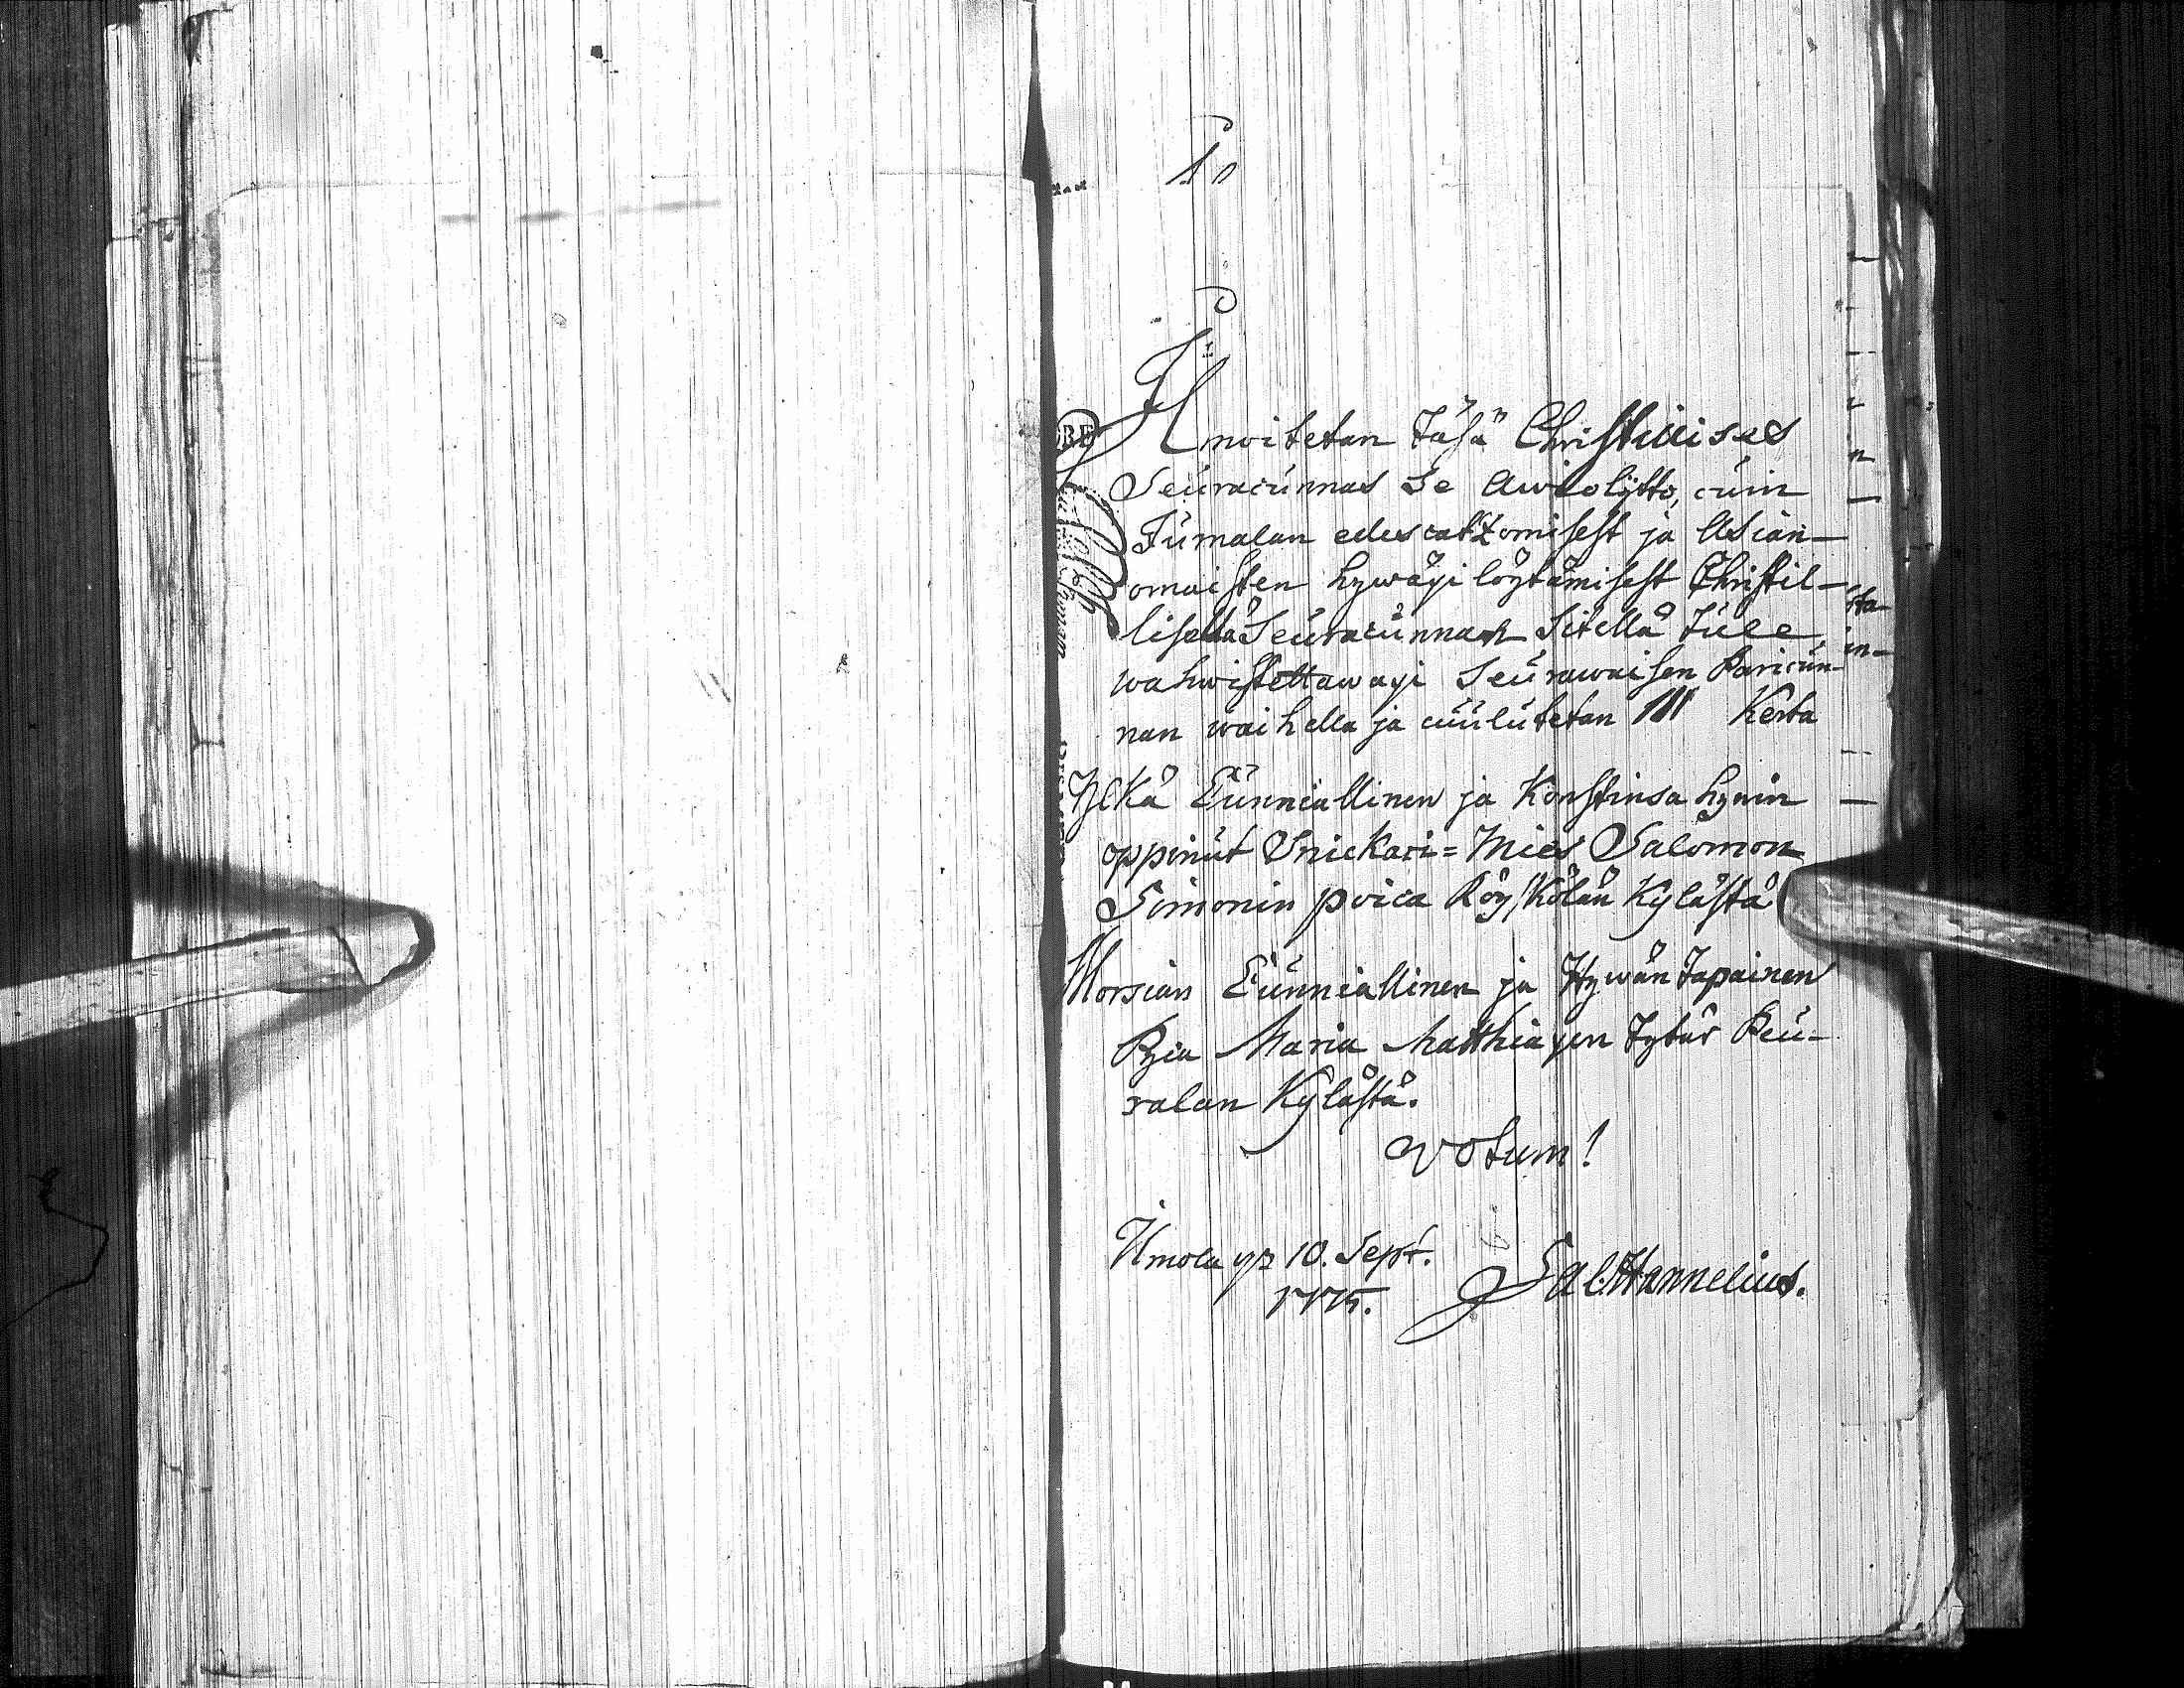 Ilmoitetan täsä Christilises
Seuracunnas se Awioliitto, cuin
Jumalan edescatzomisest ja Asian-
omaisten hywäxi löytämisest Christil-
lisellä Seuracunnan Sitellä tule
wahwistettawaxi seurawaisen Paricun-
nan waihella ja cuulutetan III Kerta
Ylkä Cunniallinen ja Konstinsa hywin
oppinut Snickari=Mies Salomon
Simonin poica Röyskölän Kylästä
Morsian Cunniallinen ja Hywän Tapainen
Pyia Maria Matthiaxen Tytär Peu-
ralan Kylästä.
Votum!
Urmola 10. Sept.
1775. Sal. Hannelius.